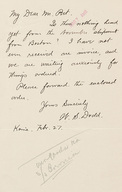 My Dear Mr. Peet.
Is there nothing heard
yet from the November shipment
from Boston? I have not
even received an invoice, and
we are waiting anxiously for
things ordered.
Please forward the enclosed
order.
Yours Sincerely
W. S. Dodd
Konia Feb. 27.